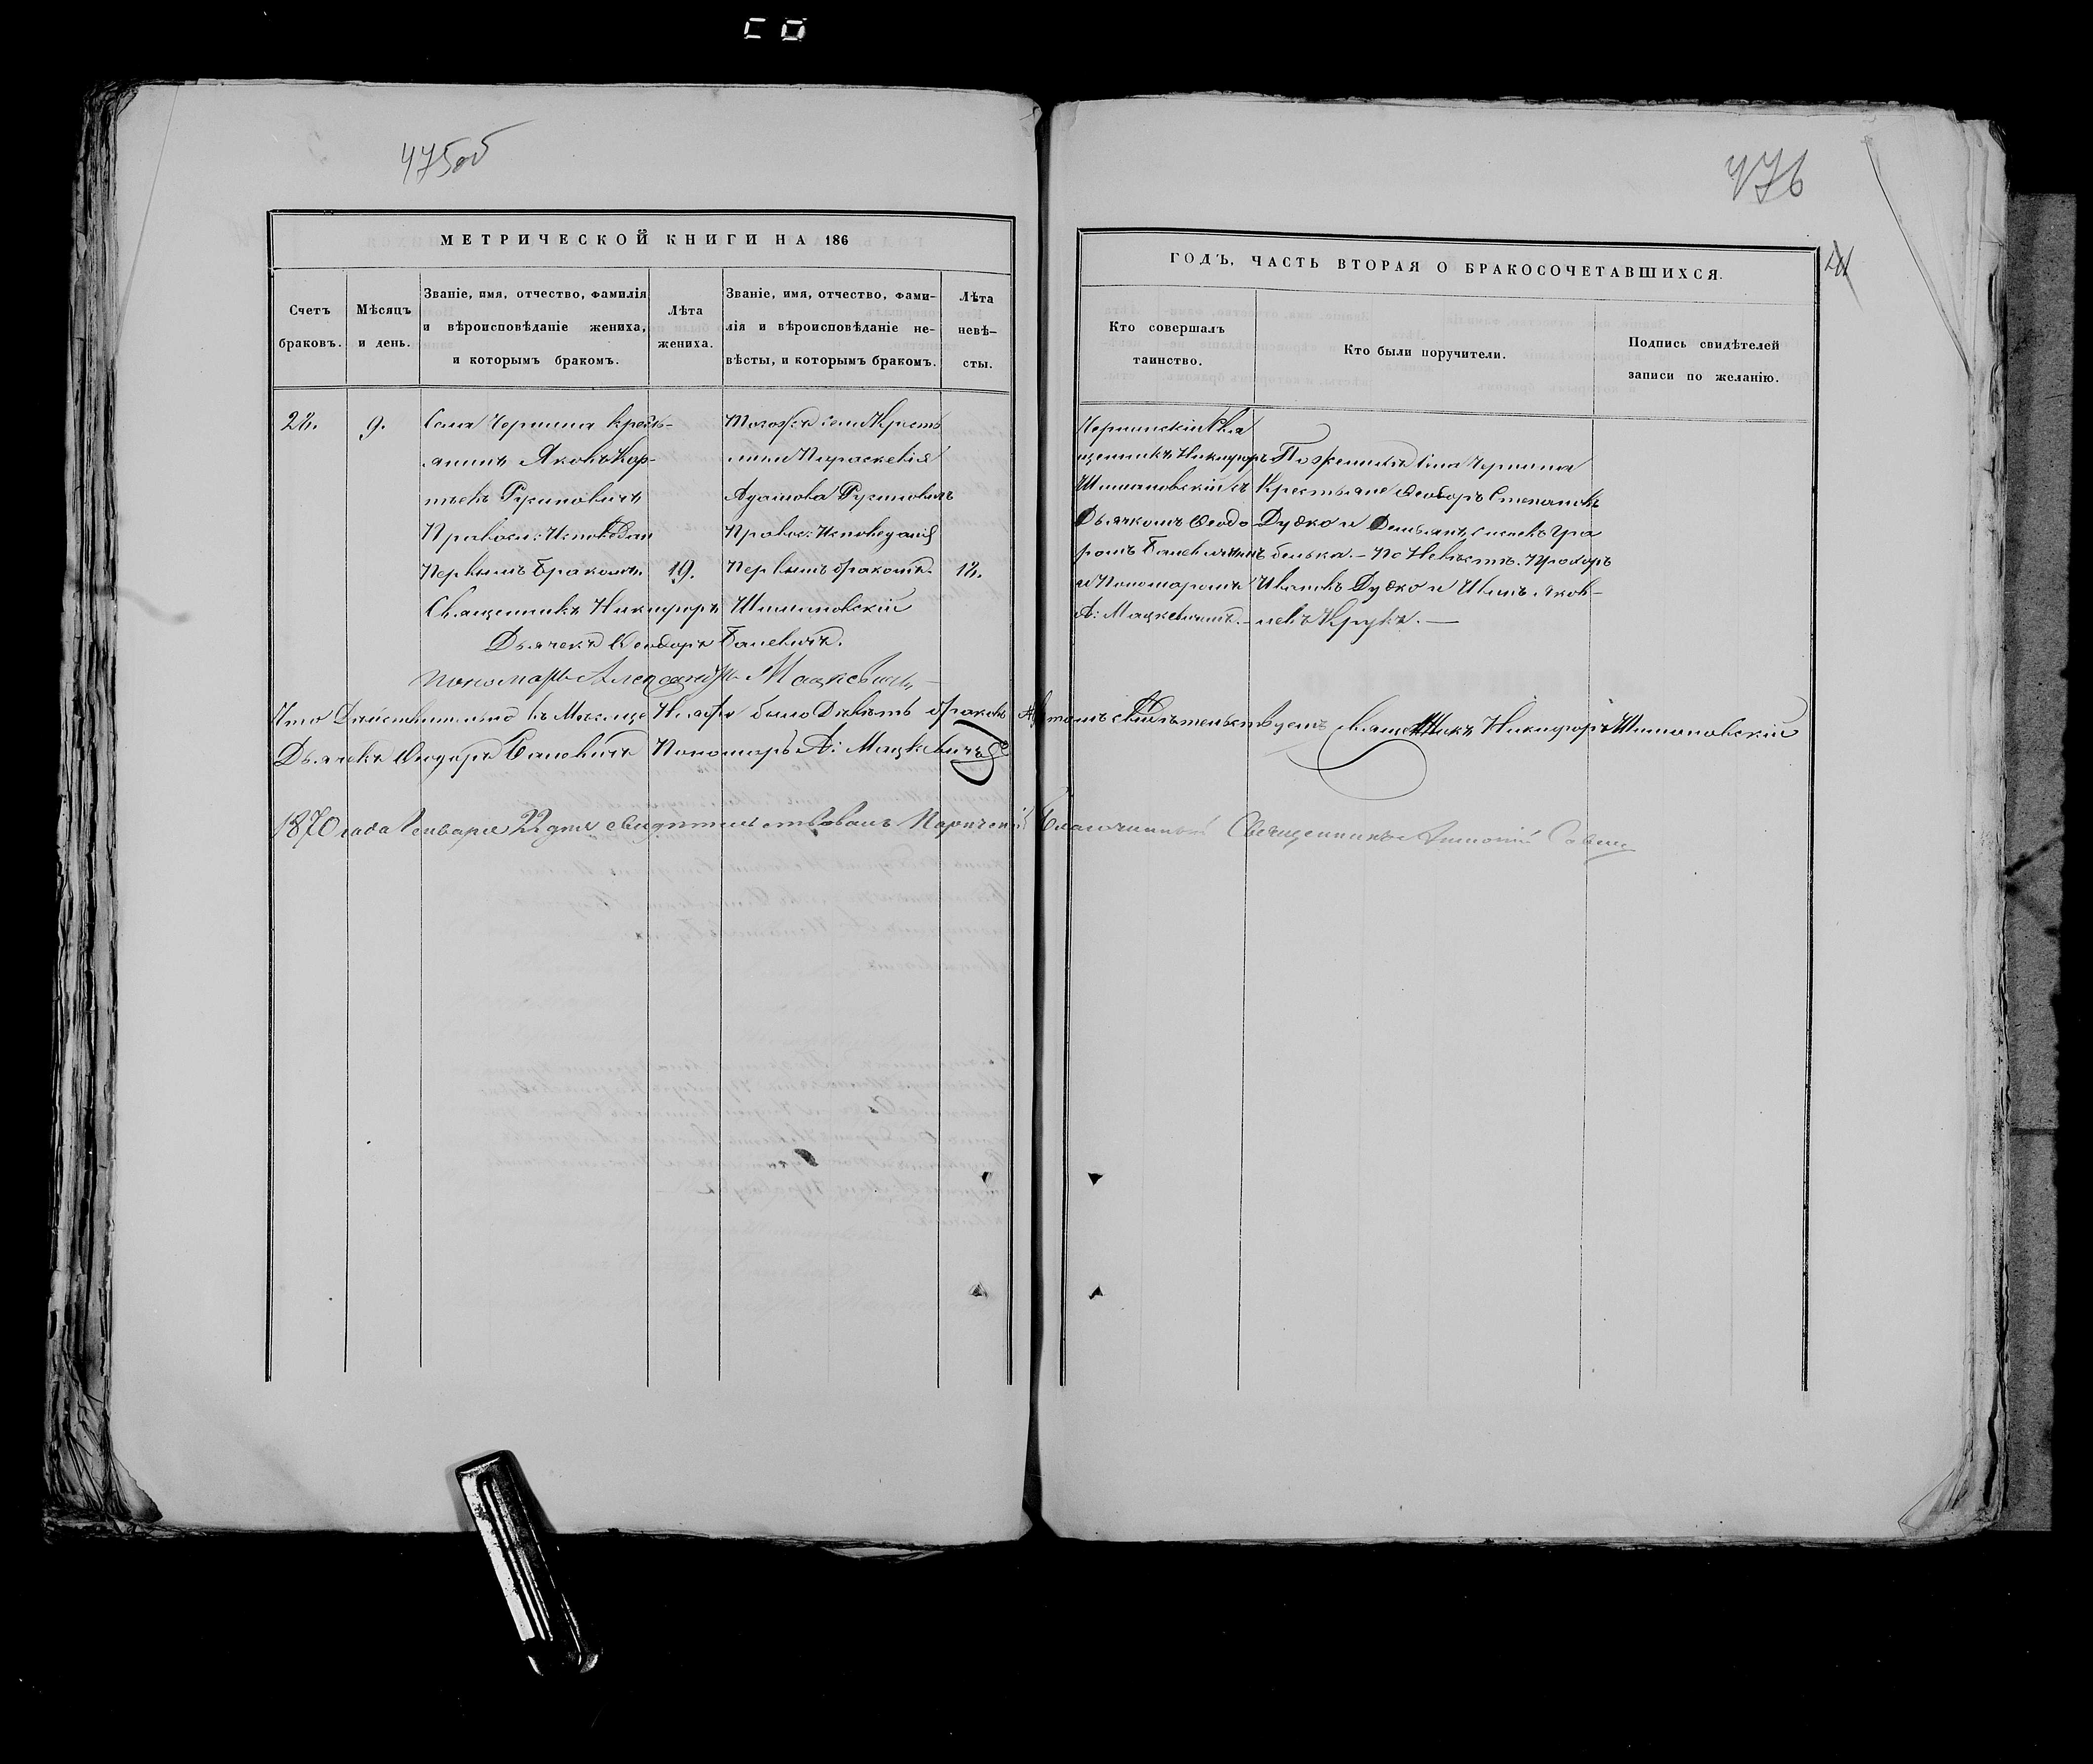 475об
476
МЕТРИЧЕСКОЙ КНИГИ НА 186
ГОДЪ, ЧАСТЬ ВТОРАЯ О БРАКОСОЧЕТАВШИХСЯ.
Счетъ браковъ.
Мѣсяцъ и день.
Званіе, имя, отчество, фамилія
и вѣроисповѣданіе жениха,
и которымъ бракомъ.
Лѣта
жениха.
Званіе, имя, отчество, фами-
лія и вѣроисповѣданіе не-
вѣсты, и которымъ бракомъ.
Лѣта
невѣ-
сты.
Кто совершалъ
таинство.
Кто были поручители.
Подпись свидѣтелей
записи по желанію.
22.
9.
Села Чернина Кресть-
янинъ Яковъ Кор-
Русиновичъ
Правосл: Исповѣдан
Первымъ бракомъ.
19.
Тогоже села Кресть
Параскевія
Адамова Русиновичъ
Правос: Исповеданія
Первымъ бракомъ.
18.
Чернинскій Свя
щенникъ Никифоръ
Шимановскій съ
Дьячкомъ Ѳеодо
ромъ
и Пономаромъ
А: Мацкевичемъ.
По женихѣ села Чернина
Крестьяне Ѳеодоръ Степановъ
Дудко и Демьянъ
По Невѣстѣ. Прохоръ
Ивановъ Дудко и Иванъ Яков-
левъ Крукъ.
Священникъ Никифоръ Шимановскій
Дьячекъ Ѳеодоръ
пономарь Александръ Мацкевичъ
Что Дѣйствительно въ Месяце Ноябрѣ было Дѣвять браковъ
въ томъ свидѣтельствуемъ Священникъ Никифоръ Шимановскій
Дьячекъ Ѳеодоръ
Пономарь А: Мацкевичъ
1870 года Генваря 22 дня свидѣтельствовалъ
Благочинный Священникъ Антоній